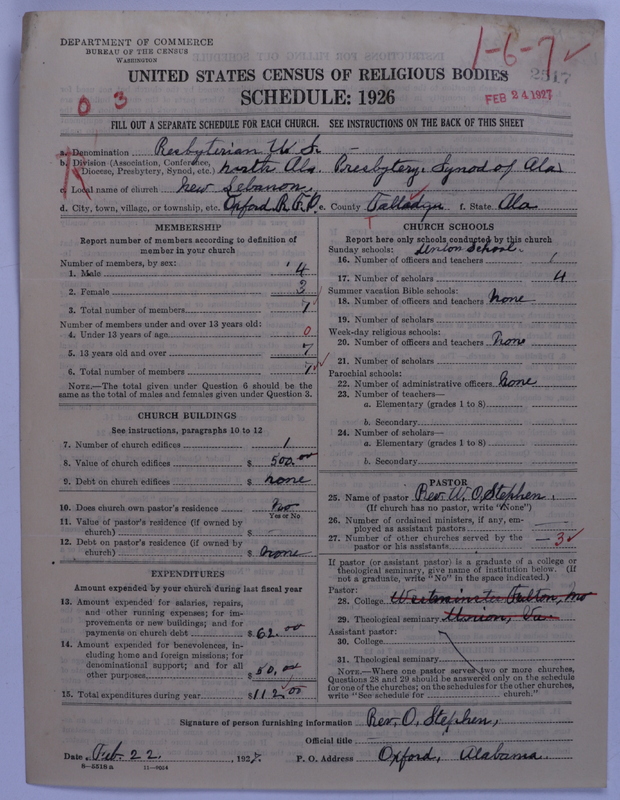 DEPARTMENT OF COMMERCE
BUREAU OF THE CENSUS
WASHINGTON
1-6-7 ✓
2517
UNITED STATES CENSUS OF RELIGIOUS BODIES
SCHEDULE: 1926
FEB 24 1927
0 3
FILL OUT A SEPARATE SCHEDULE FOR EACH CHURCH. SEE INSTRUCTIONS ON THE BACK OF THIS SHEET
a. Denomination Presbyterian U. S.
b. Division (Association, Conference, Diocese, Presbytery, Synod, etc.) North Ala. Presbytery. Synod of Ala
c. Local name of church New Lebanon,
d. City, town, village, or township, etc. Oxford R.F.D. e. County Talladega f. State Ala
MEMBERSHIP
Report number of members according to definition of
member in your church
Number of members, by sex:
1. Male 4
2. Female 3
3. Total number of members 7
Number of members under and over 13 years old:
4. Under 13 years of age 0
5. 13 years old and over 7
6. Total number of members 7 ✓
NOTE.—The total given under Question 6 should be the
same as the total of males and females given under Question 3.
CHURCH BUILDINGS
See instructions, paragraphs 10 to 12
7. Number of church edifices 1
8. Value of church edifices $ 500.00
9. Debt on church edifices $ none
10. Does church own pastor's residence No
Yes or No
11. Value of pastor's residence (if owned by
church) $
12. Debt on pastor's residence (if owned by
church) $ none
EXPENDITURES
Amount expended by your church during last fiscal year
13. Amount expended for salaries, repairs,
and other running expenses; for im-
provements or new buildings; and for
payments on church debt $ 62.00
14. Amount expended for benevolences, in-
cluding home and foreign missions; for
denominational support; and for all
other purposes $ 50.00
15. Total expenditures during year $ 112.00
CHURCH SCHOOLS
Report here only schools conducted by this church
Sunday schools: Union School.
16. Number of officers and teachers 1
17. Number of scholars 4
Summer vacation Bible schools:
18. Number of officers and teachers none
19. Number of scholars
Week-day religious schools:
20. Number of officers and teachers none
21. Number of scholars
Parochial schools:
22. Number of administrative officers none
23. Number of teachers—
a. Elementary (grades 1 to 8)
b. Secondary
24. Number of scholars—
a. Elementary (grades 1 to 8)
b. Secondary
PASTOR
25. Name of pastor Rev. W. O. Stephen.
(If church has no pastor, write "None")
26. Number of ordained ministers, if any, em-
ployed as assistant pastors
27. Number of other churches served by the
pastor or his assistants — 3 ✓
If pastor (or assistant pastor) is a graduate of a college or
theological seminary, give name of institution below. (If
not a graduate, write "No" in the space indicated.)
Pastor:
28. College Westminster Fulton, Mo
29. Theological seminary Union, Va.
Assistant pastor:
30. College
31. Theological seminary
NOTE.—Where one pastor served two or more churches,
Questions 28 and 29 should be answered only on the schedule
for one of the churches; on the schedules for the other churches,
write "See schedule for church."
Signature of person furnishing information Rev. O. Stephen,
Official title
Date Feb. 22, 1927. P. O. Address Oxford, Alabama.
8-5519a 11-9024